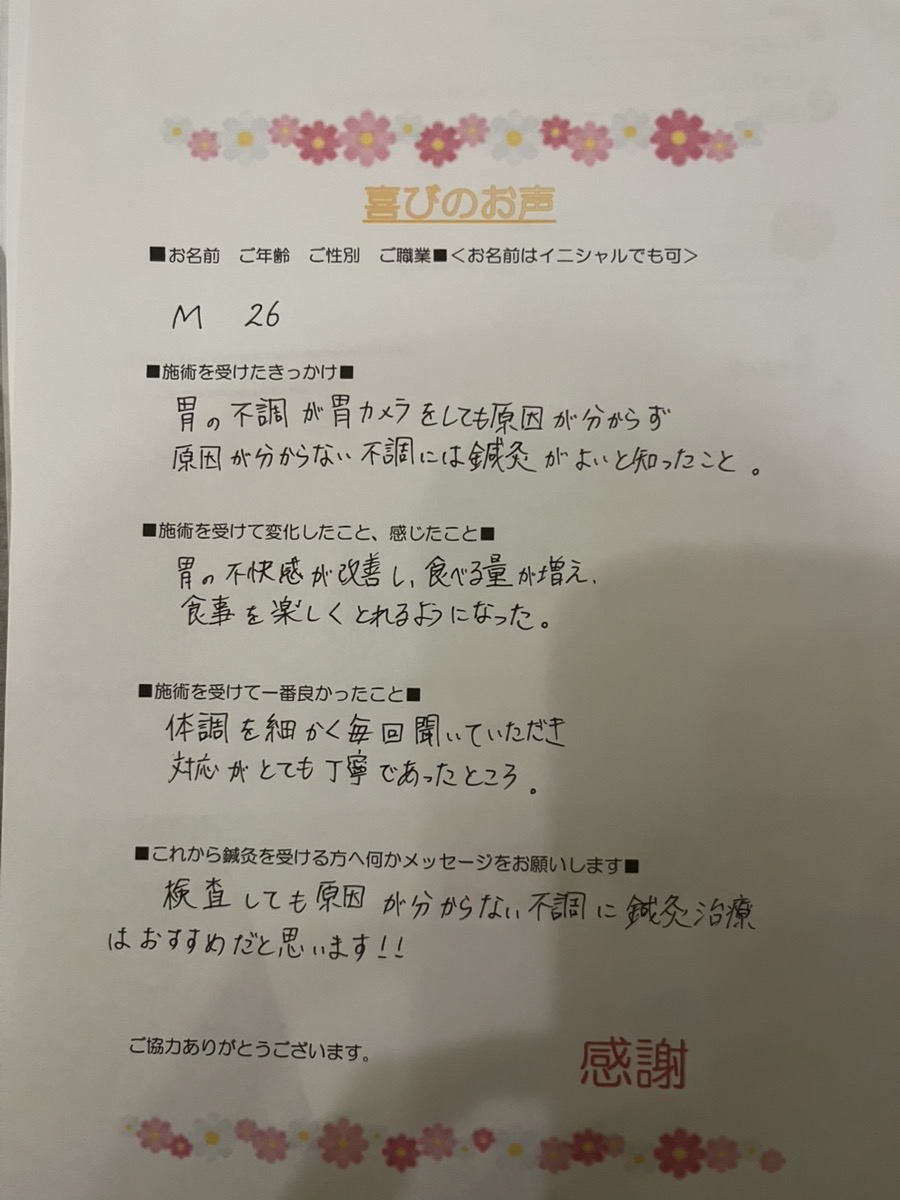 喜びのお声
■お名前　ご年齢　ご性別　ご職業■＜お名前はイニシャルでも可＞
M　26
■施術を受けたきっかけ■
胃の不調が胃カメラをしても原因が分からず
原因が分からない不調には鍼灸がよいと知ったこと。
■施術を受けて変化したこと、感じたこと■
胃の不快感が改善し、食べる量が増え、
食事を楽しくとれるようになった。
■施術を受けて一番良かったこと■
体調を細かく毎回聞いていただき
対応がとても丁寧であったところ。
■これから鍼灸を受ける方へ何かメッセージをお願いします■
検査しても原因が分からない不調に鍼灸治療
はおすすめだと思います!!
ご協力ありがとうございます。
感謝